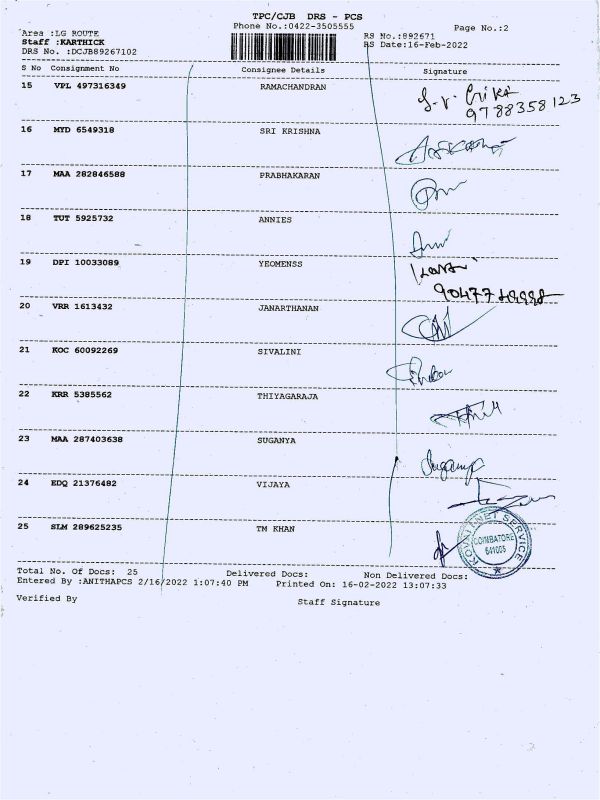 TPC/CJB DRS - PCS
Phone No.:0422-3505555
Page No.:2
Area :LG ROUTE
Staff :KARTHICK
DRS No. :DCJB89267102
RS No.:892671
RS Date:16-Feb-2022
S No Consignment No Consignee Details Signature
15 VPL 497316349 RAMACHANDRAN
9788358123
16 MYD 6549318 SRI KRISHNA
17 MAA 282846588 PRABHAKARAN
18 TUT 5925732 ANNIES
19 DPI 10033089 YEOMENSS
20 VRR 1613432 JANARTHANAN
21 KOC 60092269 SIVALINI
22 KRR 5385562 THIYAGARAJA
23 MAA 287403638 SUGANYA
Suganya
24 EDQ 21376482 VIJAYA
25 SLM 289625235 TM KHAN
SERVICE
COIMBATORE
641005
Total No. Of Docs: 25 Delivered Docs: Non Delivered Docs:
Entered By :ANITHAPCS 2/16/2022 1:07:40 PM Printed On: 16-02-2022 13:07:33
Verified By Staff Signature